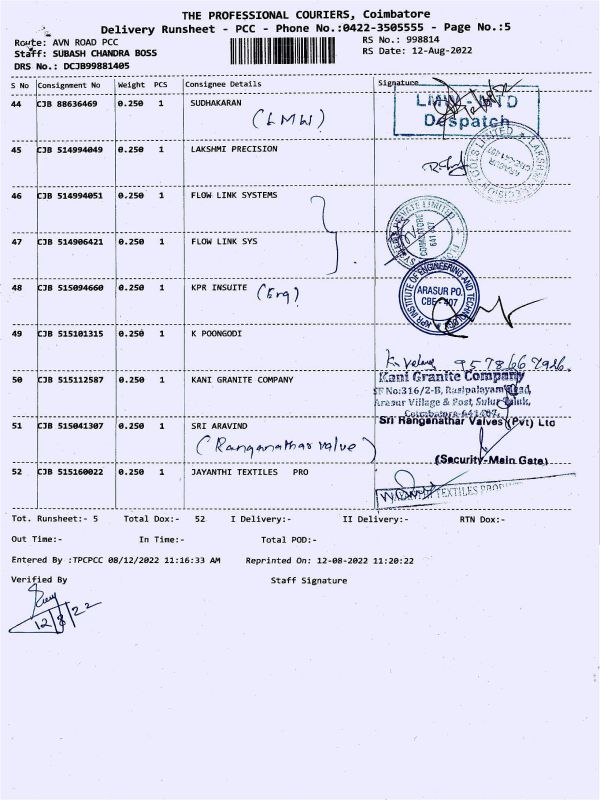 THE PROFESSIONAL COURIERS, Coimbatore
Delivery Runsheet - PCC - Phone No.:0422-3505555 - Page No.:5
Route: AVN ROAD PCC
RS No.: 998814
Staff: SUBASH CHANDRA BOSS
RS Date: 12-Aug-2022
DRS No.: DCJB99881405
S No Consignment No Weight PCS Consignee Details Signature
44 CJB 88636469 0.250 1 SUDHAKARAN
(LMW)
Despatch
45 CJB 514994049 0.250 1 LAKSHMI PRECISION
46 CJB 514994051 0.250 1 FLOW LINK SYSTEMS
COIMBATORE
641 407
47 CJB 514906421 0.250 1 FLOW LINK SYS
48 CJB 515094660 0.250 1 KPR INSUITE (Erg)
KPR INSTITUTE OF ENGINEERING AND TECHNOLOGY
ARASUR PO.
CBE - 407
49 CJB 515101315 0.250 1 K POONGODI
50 CJB 515112587 0.250 1 KANI GRANITE COMPANY
Kani Granite Company
SF No:316/2-B, Rasipalayam Road,
Arasur Village & Post, Sulur Taluk,
Coimbatore-641407.
51 CJB 515041307 0.250 1 SRI ARAVIND
Sri Ranganathar Valves (Pvt) Ltd
(Ranganathar valve)
(Security-Main Gate)
52 CJB 515160022 0.250 1 JAYANTHI TEXTILES PRO
TEXTILES
Tot. Runsheet:- 5 Total Dox:- 52 I Delivery:- II Delivery:- RTN Dox:-
Out Time:- In Time:- Total POD:-
Entered By :TPCPCC 08/12/2022 11:16:33 AM Reprinted On: 12-08-2022 11:20:22
Verified By Staff Signature
12/8/22